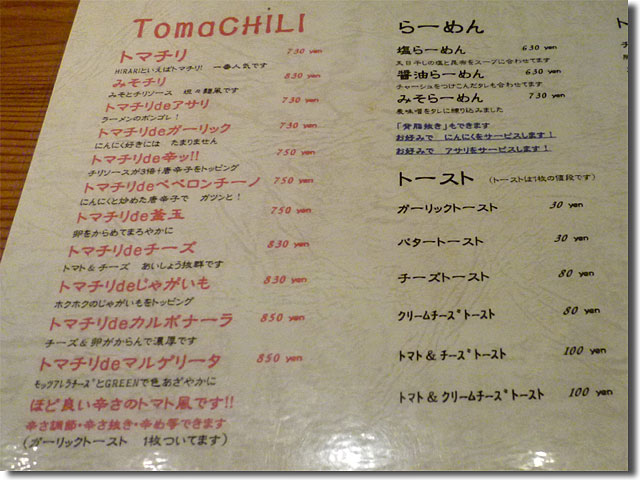 TomaCHILI
トマチリ 730 yen
HIRARIといえばトマチリ! 一番人気です
みそチリ 830 yen
みそとチリソース 坦々麺風です
トマチリdeアサリ 730 yen
ラーメンのボンゴレ!
トマチリdeガーリック 730 yen
にんにく好きには たまりません
トマチリde辛ッ!! 750 yen
チリソースが3倍!唐辛子をトッピング
トマチリdeペペロンチーノ 750 yen
にんにくと炒めた唐辛子で ガツンと!
トマチリde釜玉 750 yen
卵をからめてまろやかに
トマチリdeチーズ 830 yen
トマト&チーズ あいしょう抜群です
トマチリdeじゃがいも 830 yen
ホクホクのじゃがいもをトッピング
トマチリdeカルボナーラ 850 yen
チーズ&卵がからんで濃厚です
トマチリdeマルゲリータ 850 yen
モッツアレラチーズとGREENで色あざやかに
ほど良い辛さのトマト風です!!
辛さ調節・辛さ抜き・辛め等できます
(ガーリックトースト 1枚ついてます)
らーめん
塩らーめん 630 yen
天日干しの塩と昆布をスープに合わせてます
醤油らーめん 630 yen
チャーシュをつけこんだタレも合わせてます
みそらーめん 730 yen
麦味噌をタレに練り込みました
「背脂抜き」もできます
お好みで にんにくをサービスします!
お好みで アサリをサービスします!
トースト (トーストは1枚の値段です)
ガーリックトースト 30 yen
バタートースト 30 yen
チーズトースト 80 yen
クリームチーズトースト 80 yen
トマト&チーズトースト 100 yen
トマト&クリームチーズトースト 100 yen